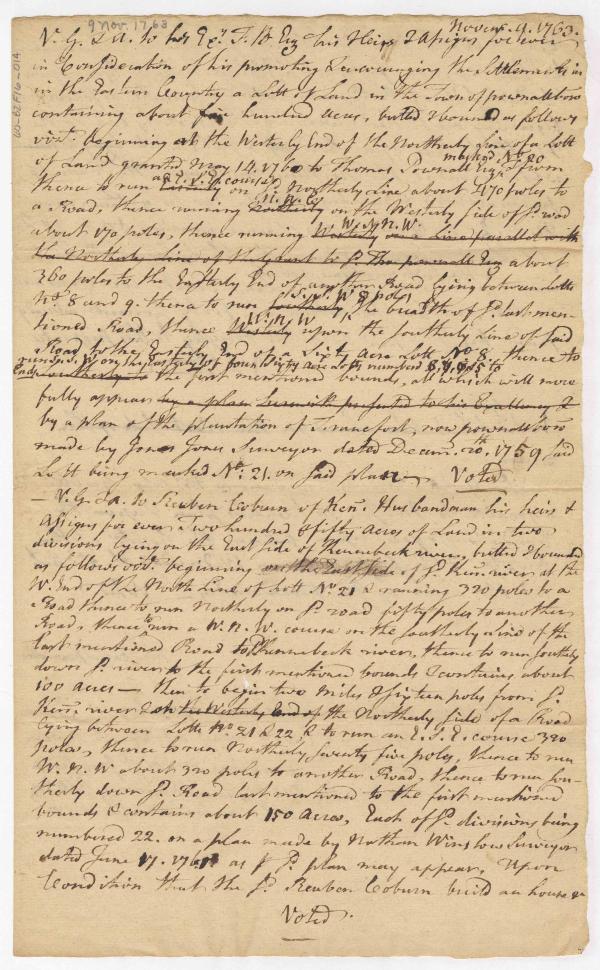 9 Nov. 1763
Novem. 9. 1763.
60-62F16-014
V. G. & A. to his Exy. F. B Esq his Heirs & Assigns for ever
in Consideration of his promoting & encouraging the Settlements in
in the Eastern Country a Lott of Land in the Town of pownalboro
containing about five hundred acres, butted & bounded as follows
vizt. Beginning at the Westerly End of the Northerly Line of a Lott
of Land granted may 14. 1760 to Thomas Pownall Esq. marked No. 20 from
thence to run Easterly an E. S. E. course on sd. Northerly Line about 470 poles to
a Road, thence running Northerly N. N. E. on the Westerly side of sd. road
about 170 poles, thence running Westerly W. N. W. on a Line parallel with
the Northerly Line of the Grant to sd. Thos pownall Esq about
360 poles to the Easterly End of another Road lying between Lotts
No. 8 and 9. thence to run southerly S. S. W. 8 poles the breadth of sd. last men-
tioned Road, thence Westerly W. N. W. upon the southerly Line of said
Road to the Easterly End of a Sixty acre Lott No. 8. thence to
run S. S. W. on the Easterly of four Sixty acre Lotts numbered 8. 7. 6. & 5 to
Ends southerly to the first mentioned bounds, all which will more
fully appear by a plan herewith presented to his Excellency &
by a plan of the plantation of Francfort, now pownalboro
made by Jonas Jones Surveyor dated Decem. 20th. 1759 said
Lott being marked No. 21. on said plan. Voted
— V. G. & A. to Reuben Coburn of Ken. Husbandman his heirs &
Assigns for ever Two hundred & fifty Acres of Land in two
divisions lying on the East side of Kennebeck river, butted & bounded
as follows vizt. beginning on the East side of sd. Ken. river at the
W. End of the North Line of Lott No. 21 & running 320 poles to a
Road thence to run Northerly on sd. road fifty poles to another
Road, thence to run a W. N. W. course on the southerly Line of the
last mentioned Road to Kennebeck river, thence to run southerly
down sd. river to the first mentioned bounds & contains about
100 acres — then to begin two Miles & sixteen poles from sd.
Ken. river & on the Westerly End of the Northerly side of a Road
lying between Lotts No. 21 & 22 & to run an E. S. E. course 320
poles, thence to run Northerly Seventy five poles, thence to run
W. N. W about 320 poles to another Road, thence to run sou-
therly down sd. Road last mentioned to the first mentioned
bounds & contains about 150 Acres, Each of sd. divisions being
numbered 22. on a plan made by Nathan Winslow Surveyor
dated June 17. 1761 as by sd. plan may appear, Upon
Condition that the sd. Reuben Coburn build an house &
Voted.